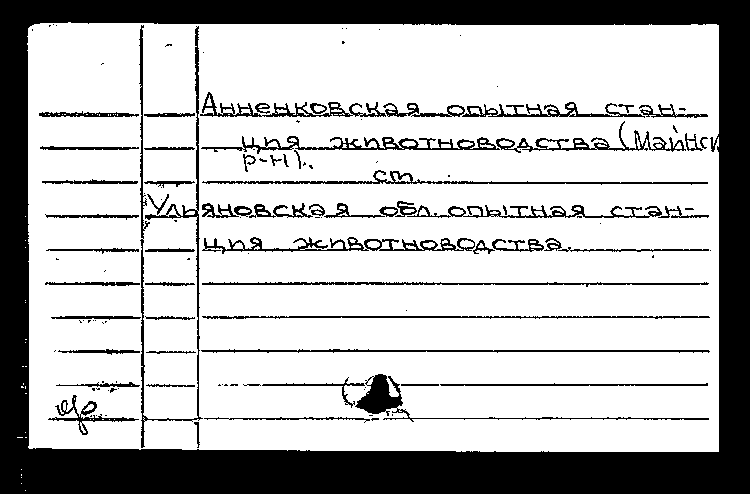 Анненковская опытная стан-
ция животноводства (Майнск
р-н).
ст.
Ульяновская обл. опытная стан-
ция животноводства.